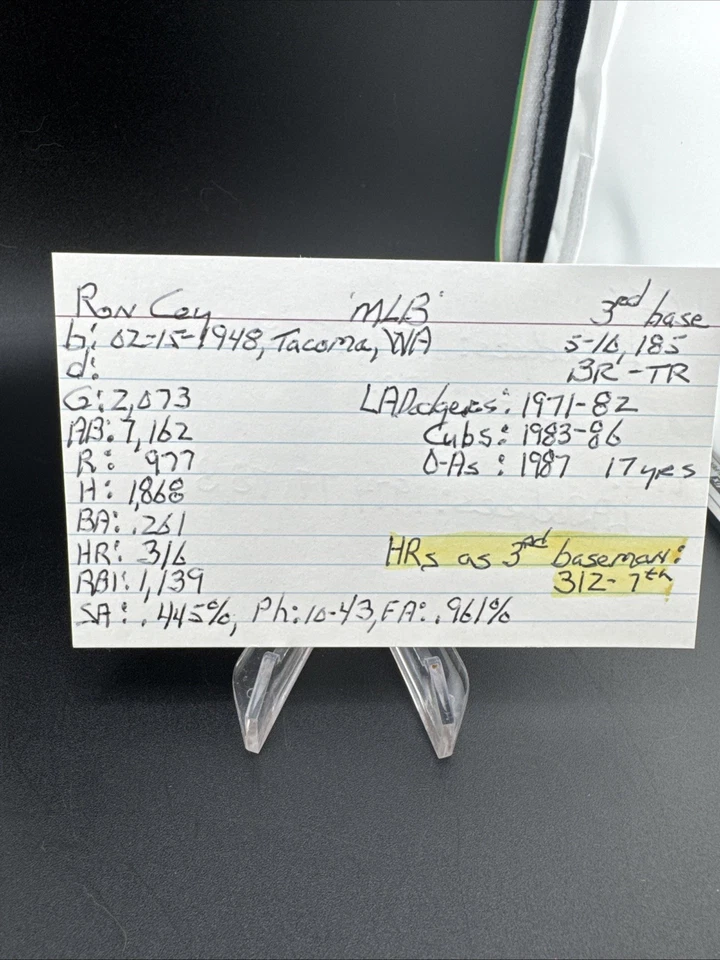 Ron Cey 'MLB' 3rd base
b: 02-15-1948, Tacoma, WA 5-10, 185
d: BR-TR
G: 2,073 LADodgers: 1971-82
AB: 7,162 Cubs: 1983-86
R: 977 O-As: 1987 17 yrs
H: 1,868
BA: .261
HR: 316 HRs as 3rd baseman:
RBI: 1,139 312-7th
SA: .445%, Ph: 10-43, FA: .961%